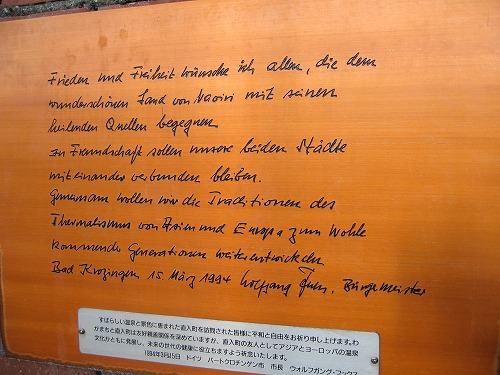 Frieden und Freiheit wünsche ich allen, die dem
wunderschönen Land von Naoiri mit seinen
heilenden Quellen begegnen
In Freundschaft sollen unsere beiden Städte
miteinander verbunden bleiben.
Gemeinsam wollen wir die Traditionen des
Thermalismus von Asien und Europa zum Wohle
kommender Generationen weiterentwickeln
Bad Krozingen 15. März 1994 Wolfgang Fuchs, Bürgermeister
すばらしい温泉と景色に恵まれた直入町を訪問された皆様に平和と自由をお祈り申し上げます。わ
がまちと直入町は友好親善関係を深めていますが、直入町の友人としてアジアとヨーロッパの温泉
文化がともに発展し、未来の世代の健康に役立ちますよう祈念いたします。
1994年3月15日 ドイツ バートクロチンゲン市 市長 ウォルフガング・フックス